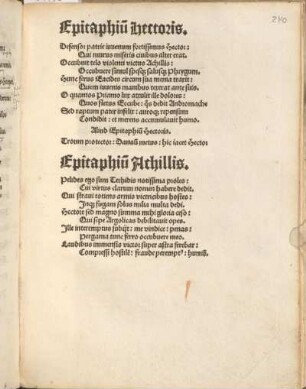 Epitaphiū Hectoris.
Defensor patrie iuuenum fortissimus Hector:
Qui murus miseris ciuibus alter erat.
Occubuit telo violenti victus Achillis:
Occubuere simul spesq; salusq; Phrygum.
Hunc ferus Eacides circum sua menia traxit:
Quem iuuenis manibus texerat ante suis.
O quantos Priamo lux attulit illa dolores:
Quos fletus Hecube: q̄s dedit Andromache
Sed raptum pater infelix: auroq; repensum
Condidit: et merens accumulauit humo.
Aliud Epitaphiū Hectoris.
Troum protector: Danaū metus: hic iacet Hector
Epitaphiū Achillis.
Pelides ego sum Thetidis notissima proles:
Cui virtus clarum nomen habere dedit.
Qui straui totiens armis victricibus hostes:
Inq; fugam solus milia multa dedi.
Hectore sed magno summa mihi gloria ceso:
Qui sepe Argolicas debilitauit opes.
Ille interemptus subijt: me vindice: penas:
Pergama tunc ferro occubuere meo.
Laudibus immensis victor super astra ferebar:
Compressi hostilē: fraude perempt⁹: humū.
240